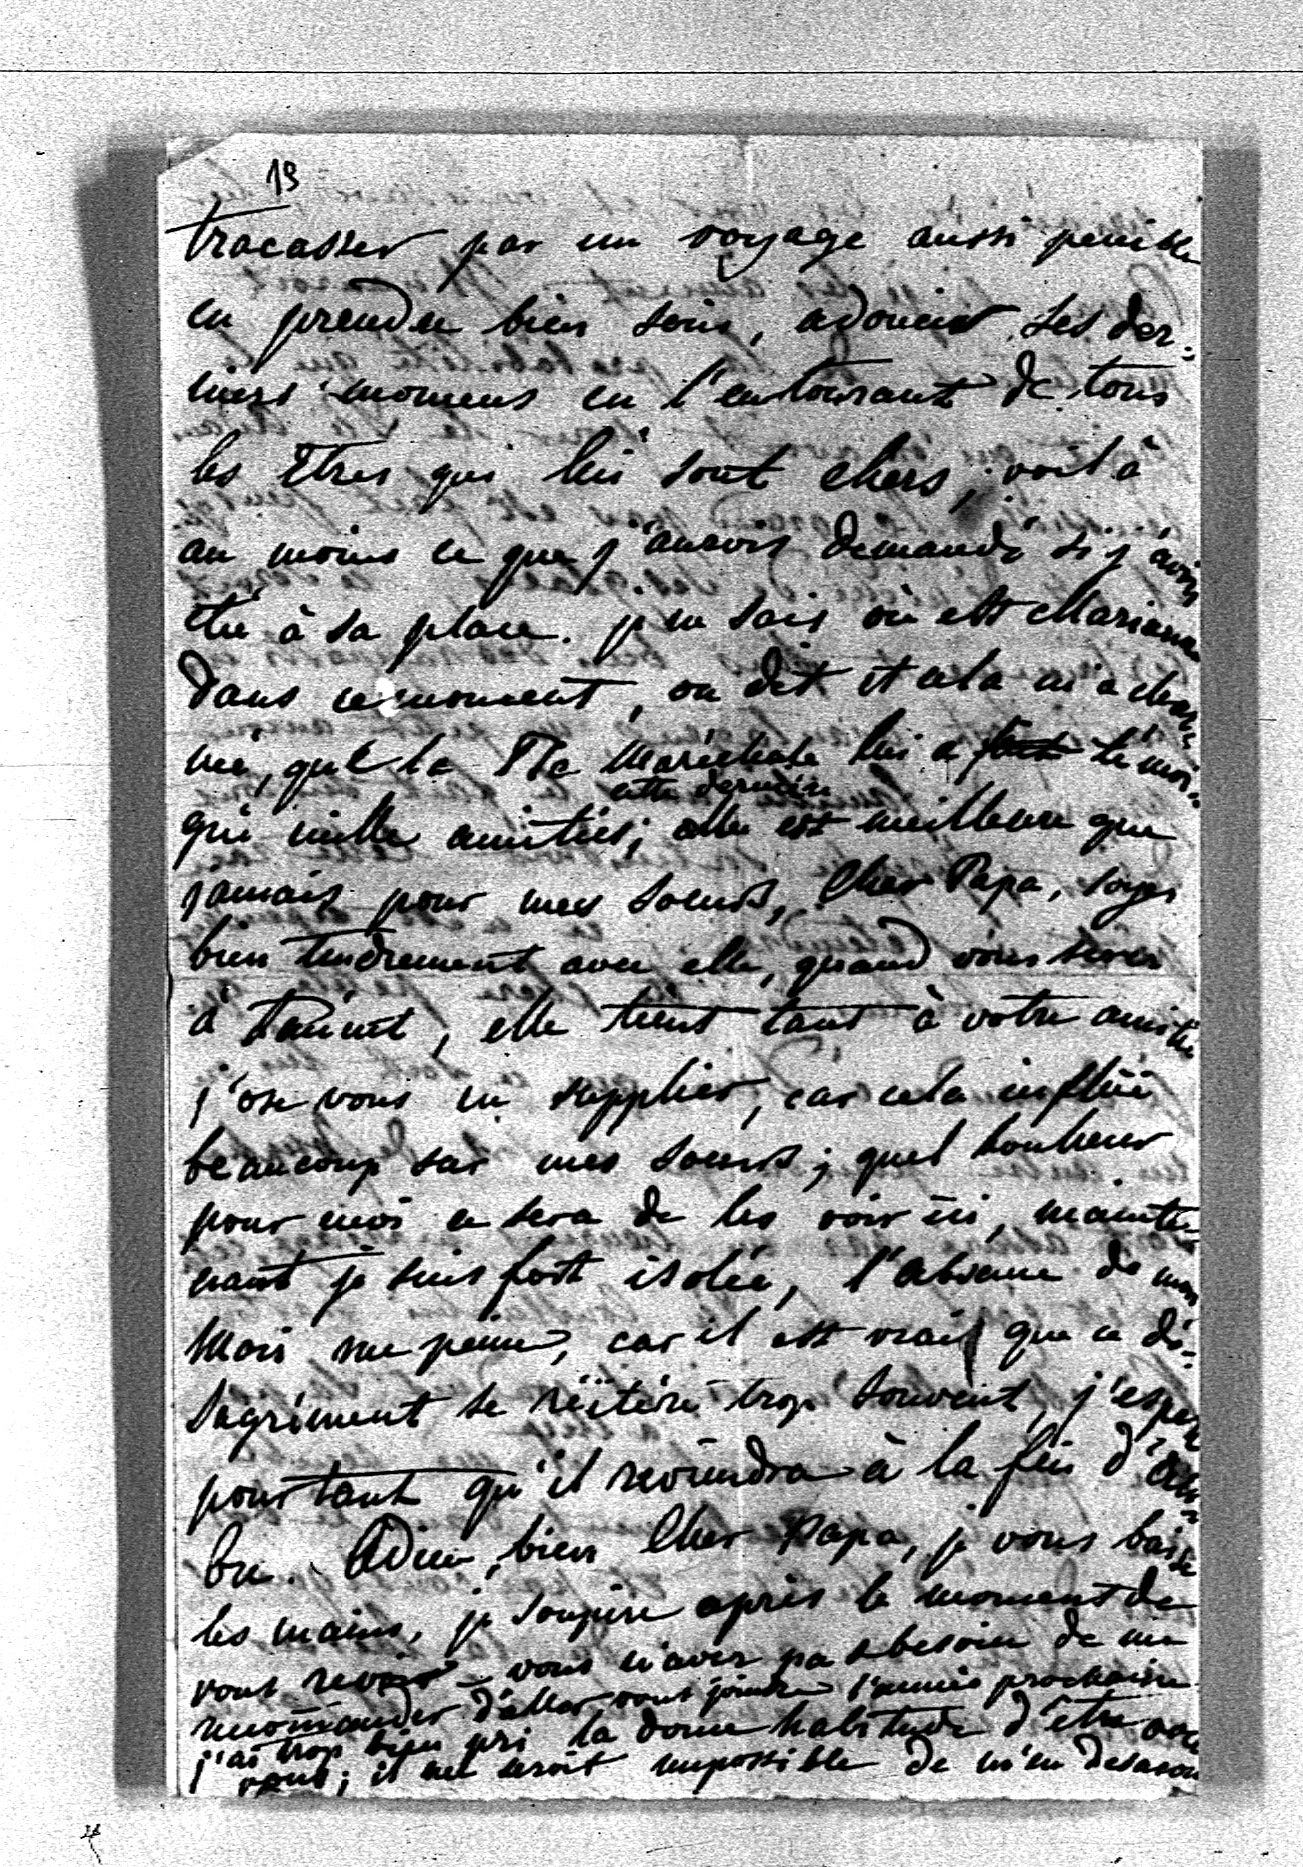 13
tracasser par un voyage aussi penible
en prendre bien soin, adoucir ses der-
niers momens en l'entourant de tous
les Etres qui lui sont chers, voilà
au moins ce que j'aurois demandé si j'avois
été à sa place. je ne sais où est Marianne
dans ce moment, on dit et cela m'a char-
mé, que la Pss Maréchale lui a temoi-
gné mille amitiés; cette dernière est meilleure que
jamais pour mes soeurs, Cher Papa, soyez
bien tendrement avec elle, quand vous serez
à , elle tient tant à votre amitié
j'ose vous en supplier, car cela influe
beaucoup sur mes soeurs; quel bonheur
pour moi ce sera de les voir ici, mainte
nant je suis fort isolée, l'absence de mon
Mari me peine, car il est vrai que ce dé-
sagrément se réitère trop souvent, j'espere
pourtant qu'il reviendra à la fin d'
bre. Adieu, bien Cher Papa, je vous baise
les mains, je soupire après le moment de
vous revoir, vous n'avez pas besoin de me
recomander d'aller vous joindre l'année prochaine
j'ai trop bien pri la douce habitude d'être avec
vous; il me seroit impossible de m'en desacou